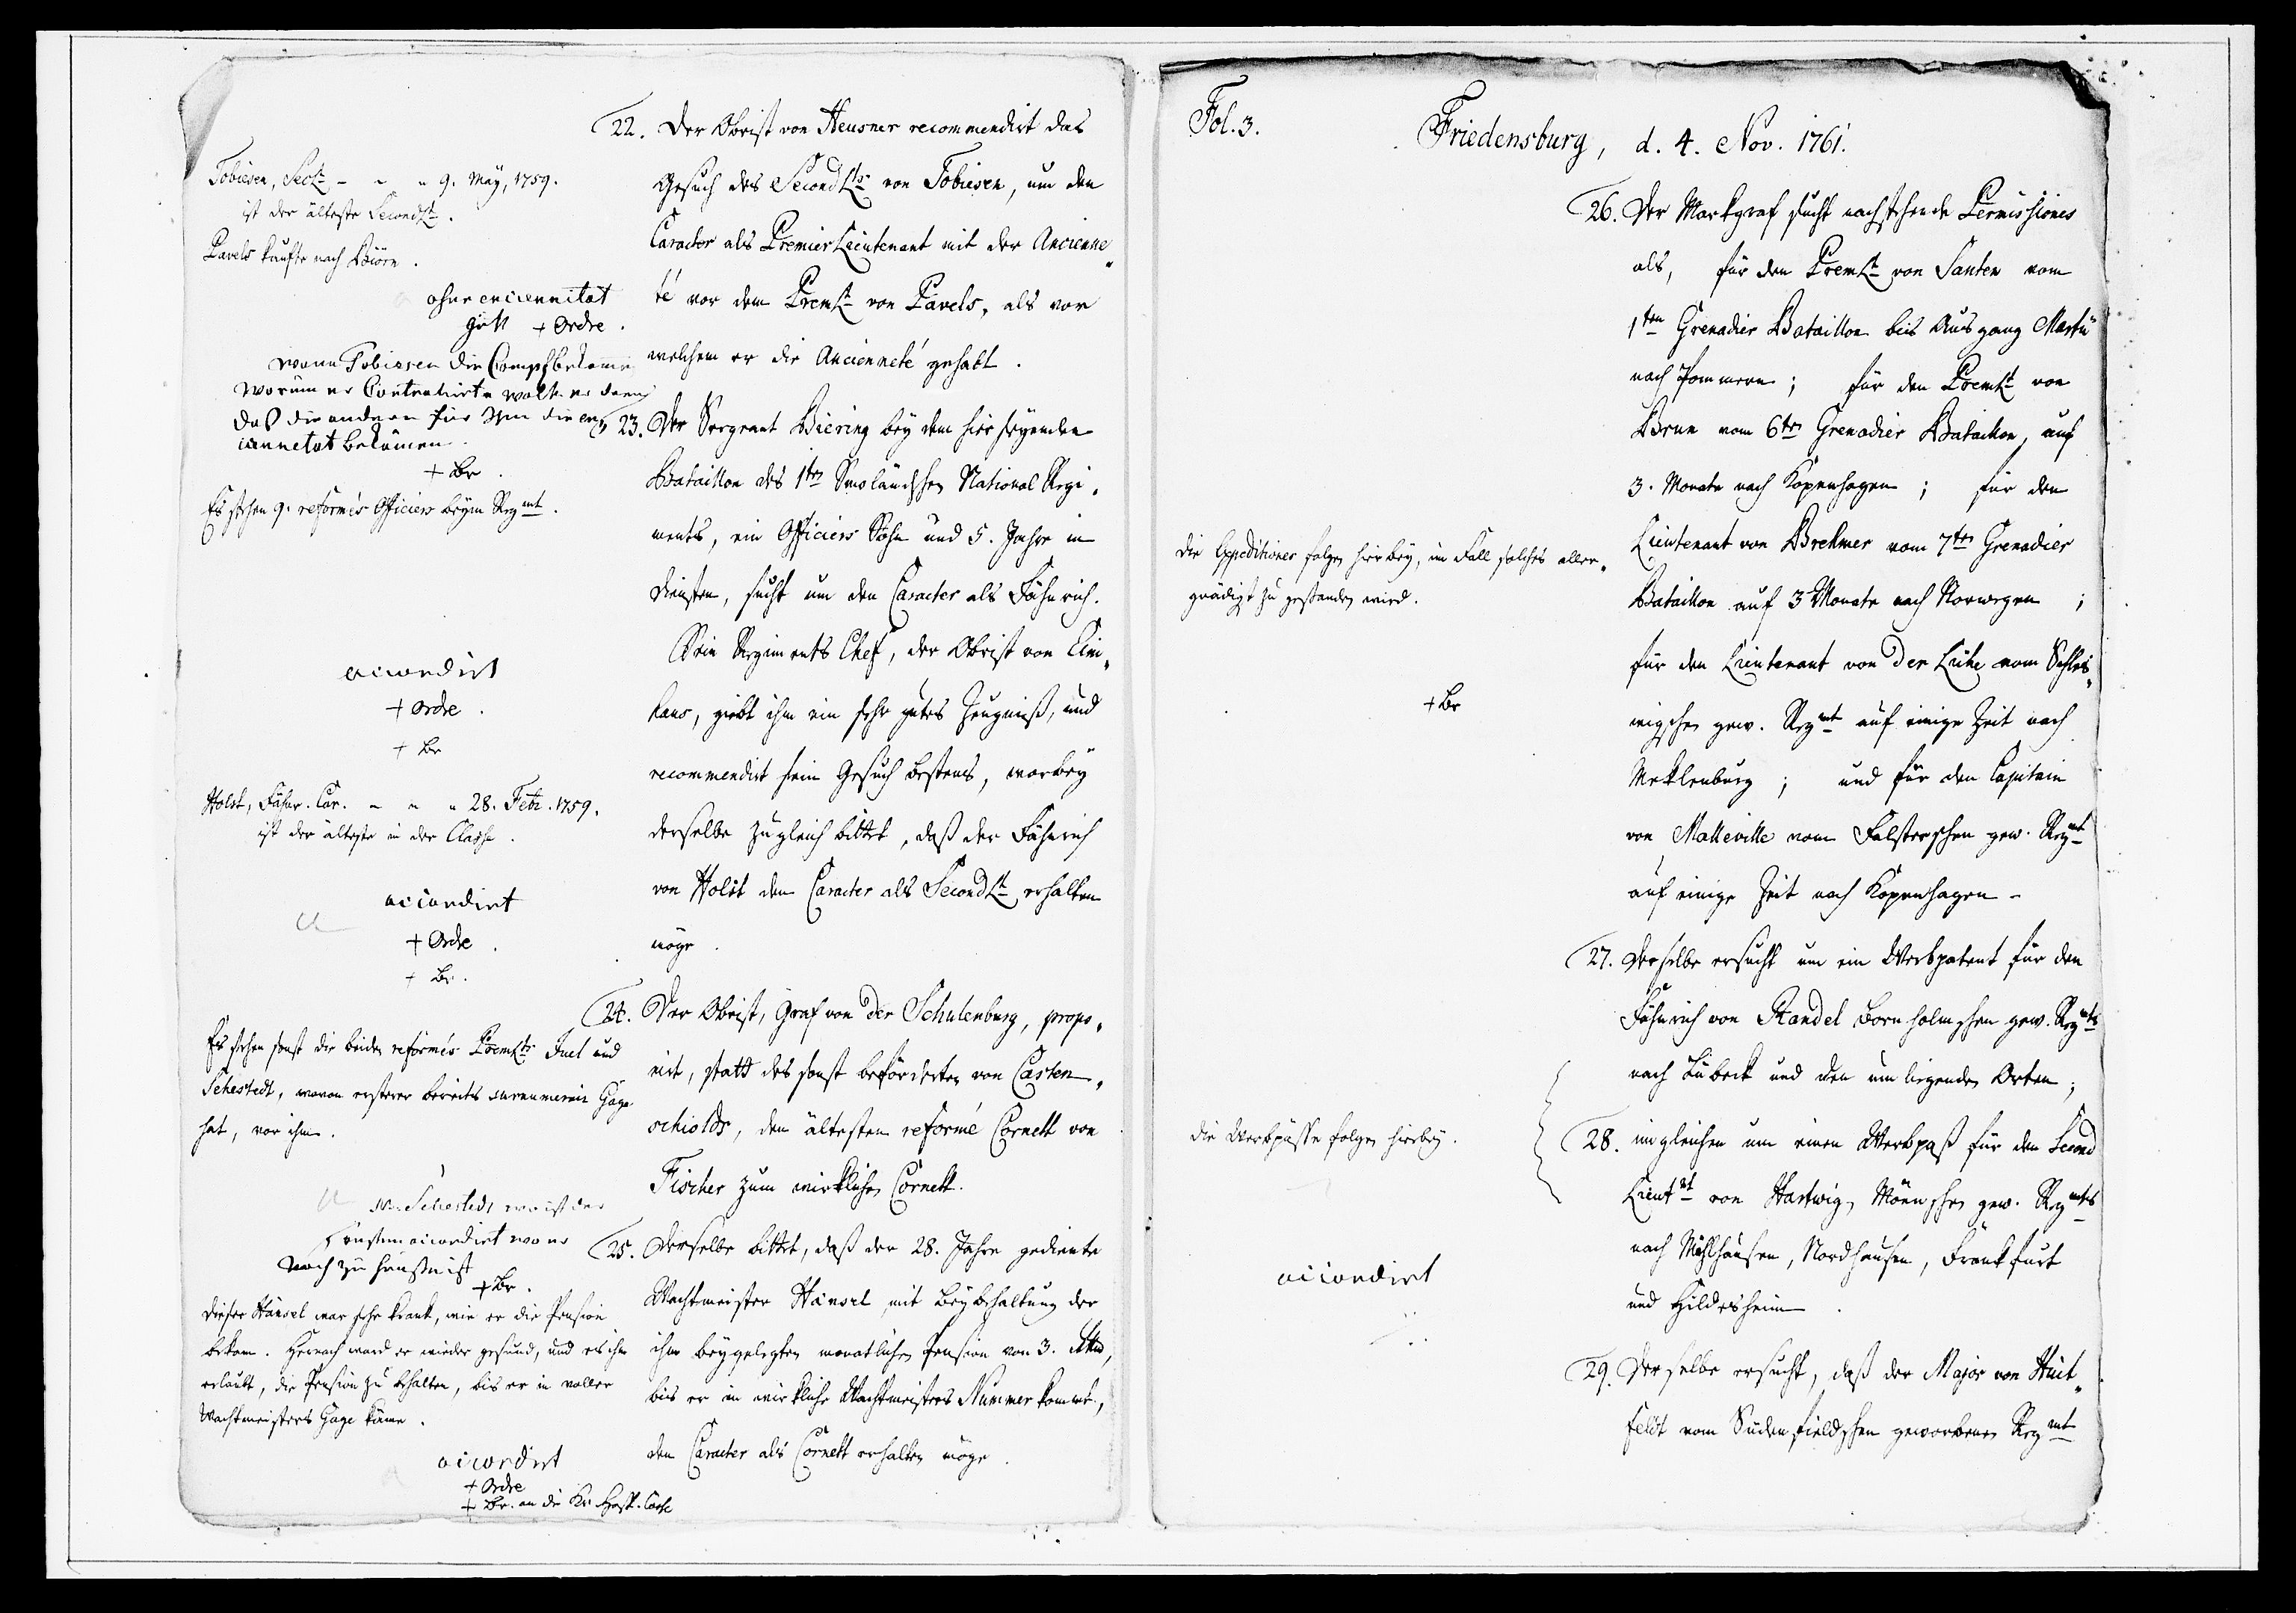 22. Der Obrist von Heusner recommendirt das
Gesuch des SecondLts von Tobiesen, um den
Caracter als PremierLieutenant mit der Ancienne„
té vor dem PremLt von Pavels, als vor
welchem er die Ancienneté gehabt.
Tobiesen, SecLt - - - 9. May, 1759.
ist der älteste SecondLt.
Pavels kaufte nach Biörn.
ohne enciennitat
+ Ordre.
wann Tobiesen die Comp bekäme
worum er Contrahirte wolte er dann
daß die andern für Ihm die en„
ciennetat bekämen.
+ Br.
23. Der Sergeant Biering bey dem hier seyenden
Bataillon des 1ten Smoländschen National Regi„
ments, ein Officiers Sohn und 5. Jahre in
Diensten, sucht um den Caracter als Fähnrich.
Sein Regiments Chef, der Obrist von Eini„
haus, giebt ihm ein sehr gutes Zeugniß, und
recommendirt sein Gesuch bestens, worbey
derselbe zugleich bittet, daß der Fähnrich
von Holst den Caracter als SecondLt erhalten
möge.
Es stehen 9. reformés Officiers beym Regmt.
accordirt
+ Ordre.
+ Br
Holst, Fähnr. Car. - - - 28. Febr. 1759.
ist der älteste in der Classe.
accordirt
+ Ordre.
+ Br.
24. Der Obrist, Graf von der Schulenburg, propo„
nirt, statt des sonst beförderten von Carsten„
schiolds, den ältesten reformé Cornett von
Fischer zum wirklichen Cornett.
Es stehen sonst die beiden reformés PremLts Juel und
Sehestedt, wovon ersterer bereits surnumerair Gage
hat, vor ihm.
Sehestedt
accordirt
noch zu
+ Br.
25. Derselbe bittet, daß der 28. Jahre gediente
Wachtmeister Hänsel, mit Beybehaltung der
ihm beygelegten monatlichen Pension von 3. Rthlr,
bis er in wirkliche Wachtmeisters Nummer kommt,
den Caracter als Cornett erhalten möge.
Dieser Hänsel war sehr krank, wie er die Pension
bekam. Hernach ward er wieder gesund, und es ihm
erlaubt, die Pension zu behalten, bis er in voller
Wachtmeisters Gage käme.
accordirt
+ Ordre
+ Br. an die Kr. Hosp. Casse
Fol. 3.
Friedensburg, d. 4. Nov. 1761.
26. Der Markgraf sucht nachstehende Permissiones
als, für den PremLt von Santen vom
1ten Grenadier Bataillon bis Ausgang Martii
nach Pommern; für den PremLt von
Brun vom 6ten Grenadier Bataillon, auf
3. Monate nach Kopenhagen; für den
Lieutenant von Brehmer vom 7ten Grenadier
Bataillon auf 3 Monate nach Norwegen;
für den Lieutenant von der Lühe vom Schles„
wigschen gew. Regmt auf einige Zeit nach
Meklenburg; und für den Capitain
von Malleville vom Falsterschen gew. Regmt
auf einige Zeit nach Kopenhagen -
Die Expeditiones folgen hierbey, im Fall solches aller„
gnädigst zu gestanden wird.
+ Br
27. Derselbe ersucht um ein Werbpatent für den
Fähnrich von Randel Bornholmschen gew. Regmts
nach Lübeck und den umliegenden Orten;
28. imgleichen um einen Werbpaß für den Second
Lieutnt von Hartwig Möenschen gew. Regmts
nach Mühlhausen, Nordhausen, Frankfurt
und Hildesheim.
Die Werbpässe folgen hierbey.
accordirt
29. Derselbe ersucht, daß der Major von Huit„
feldt vom Sudenfieldschen geworbenen Regmt